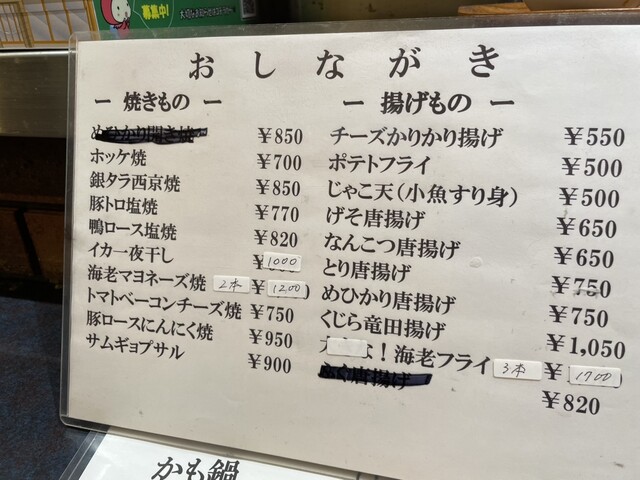 募集中!
おしながき
ー 焼きもの ー
めひかり開き焼 ¥850
ホッケ焼 ¥700
銀タラ西京焼 ¥850
豚トロ塩焼 ¥770
鴨ロース塩焼 ¥820
イカ一夜干し ¥1000
海老マヨネーズ焼 2本 ¥1200)
トマトベーコンチーズ焼 ¥750
豚ロースにんにく焼 ¥950
サムギョプサル ¥900
ー 揚げもの ー
チーズかりかり揚げ ¥550
ポテトフライ ¥500
じゃこ天(小魚すり身) ¥500
げそ唐揚げ ¥650
なんこつ唐揚げ ¥650
とり唐揚げ ¥750
めひかり唐揚げ ¥750
くじら竜田揚げ ¥1,050
!海老フライ 3本 ¥1700
ふぐ唐揚げ ¥820
かも鍋